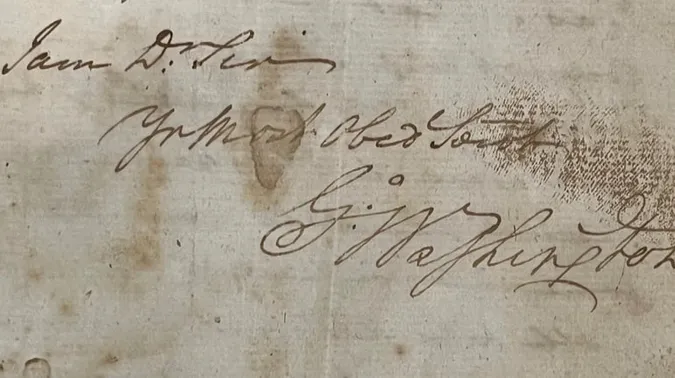 I am Dr. Sir
Yr Most Obed Servt
Go. Washington